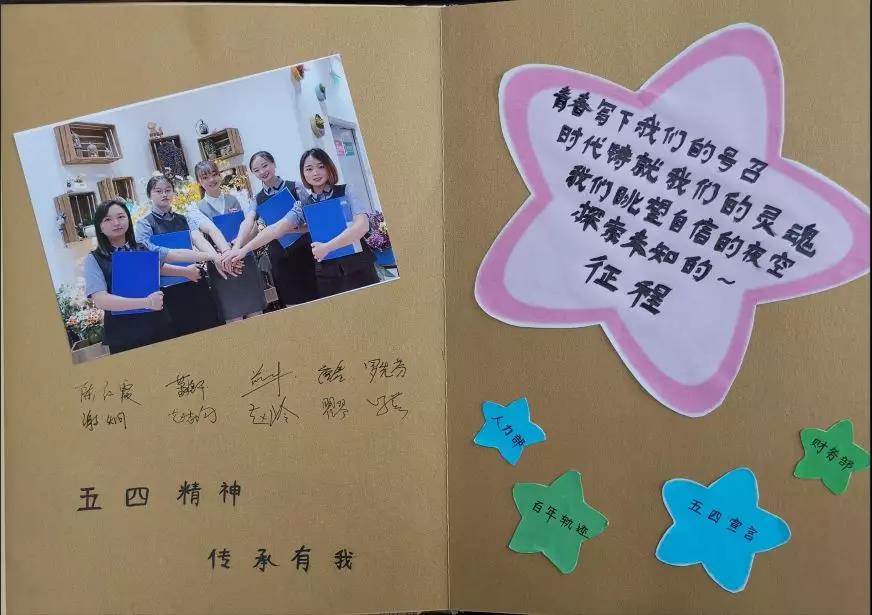 陈红霞
罗先芬
谢娴
赵玲
五四精神
传承有我
青春写下我们的号召
时代铸就我们的灵魂
我们眺望自信的夜空
探索未知的~
征程
人力部
财务部
百年轨迹
五四宣言